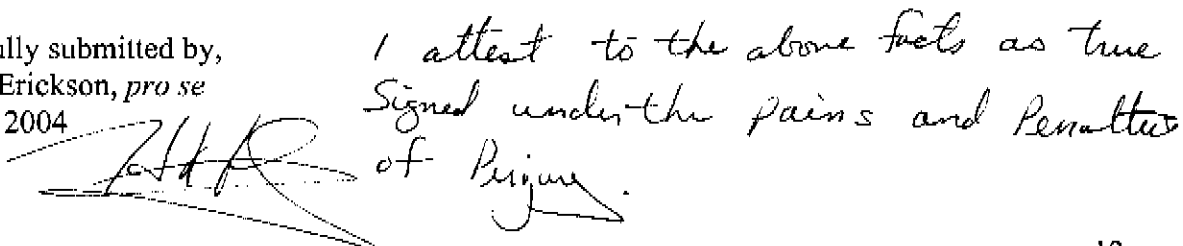 ully submitted by,
Erickson, pro se
2004
I attest to the above facts as true
Signed under the pains and Penalties
of Perjury.